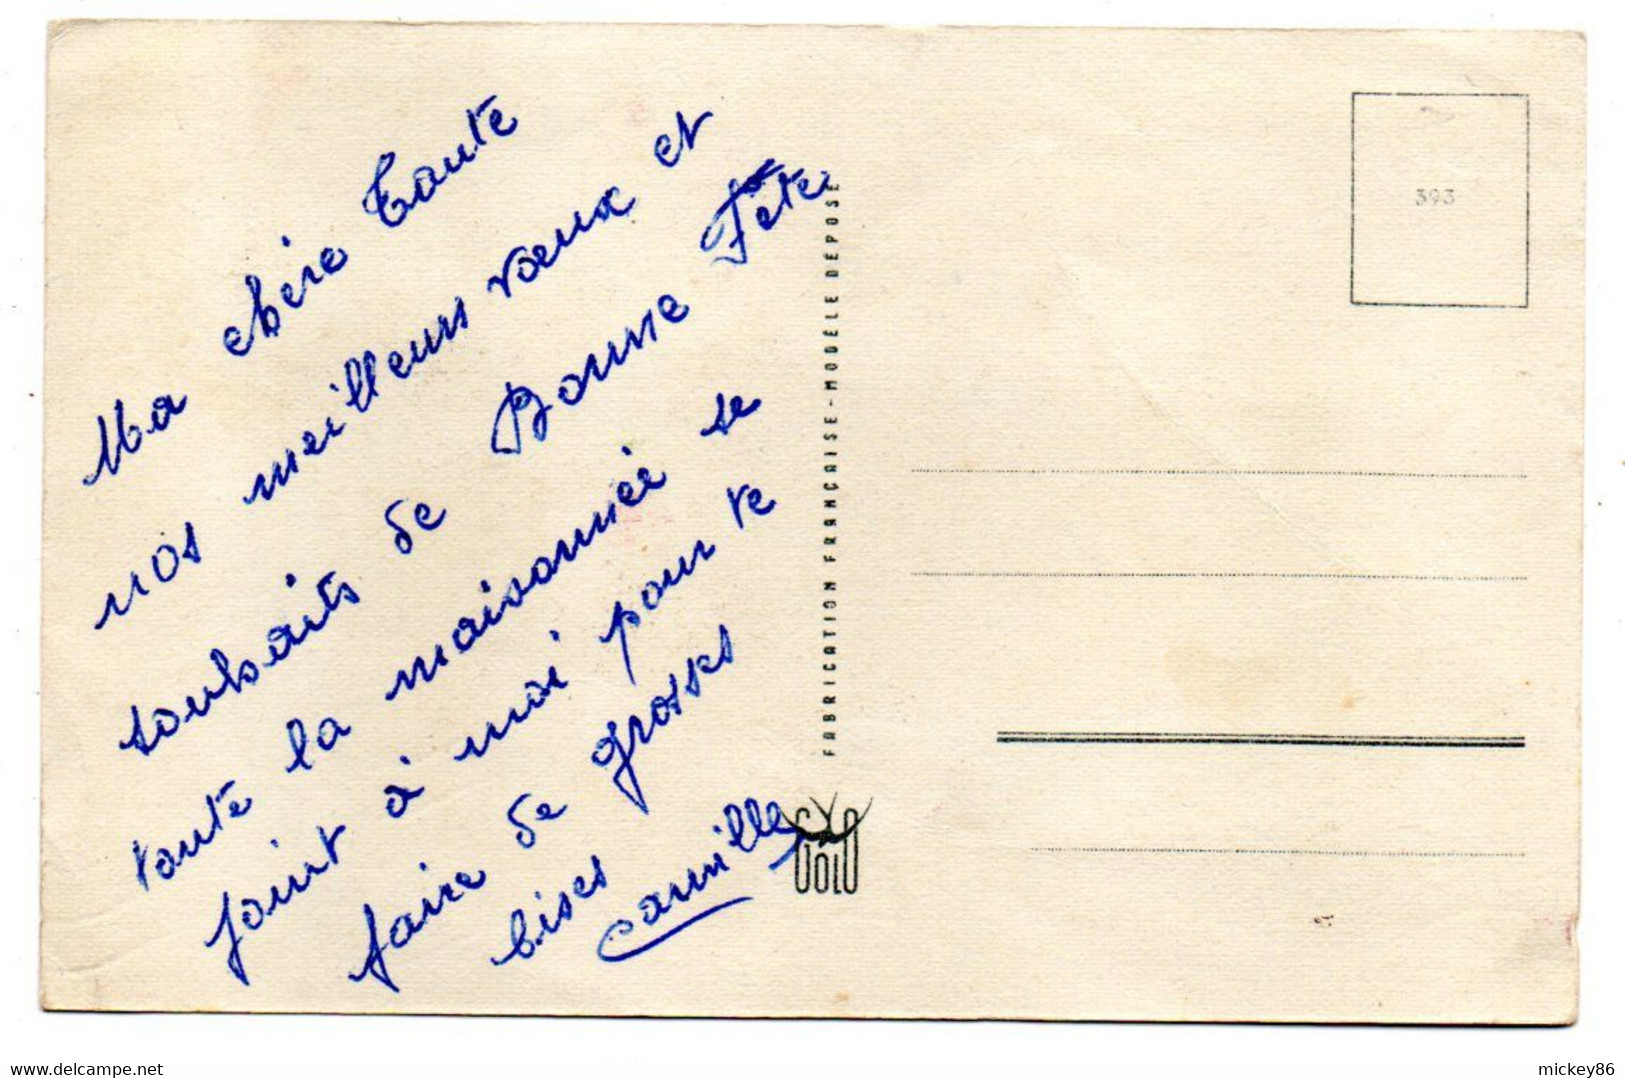 Ma chère Tante
nos meilleurs vœux et
souhaits de Bonne Fête
toute la maisonnée se
joint à moi pour te
faire de grosses
bises
Camille
FABRICATION FRANCAISE - MODÈLE DÉPOSÉ
393
mickey86